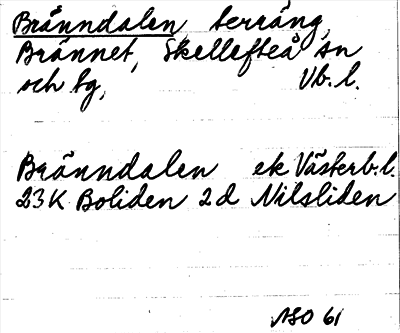 Brånndalen, terräng,
Brännet, Skellefteå sn
och tg, Vb. l.
Brånndalen ek Västerb. l.
23K Boliden 2d Nilsliden
ASO 61